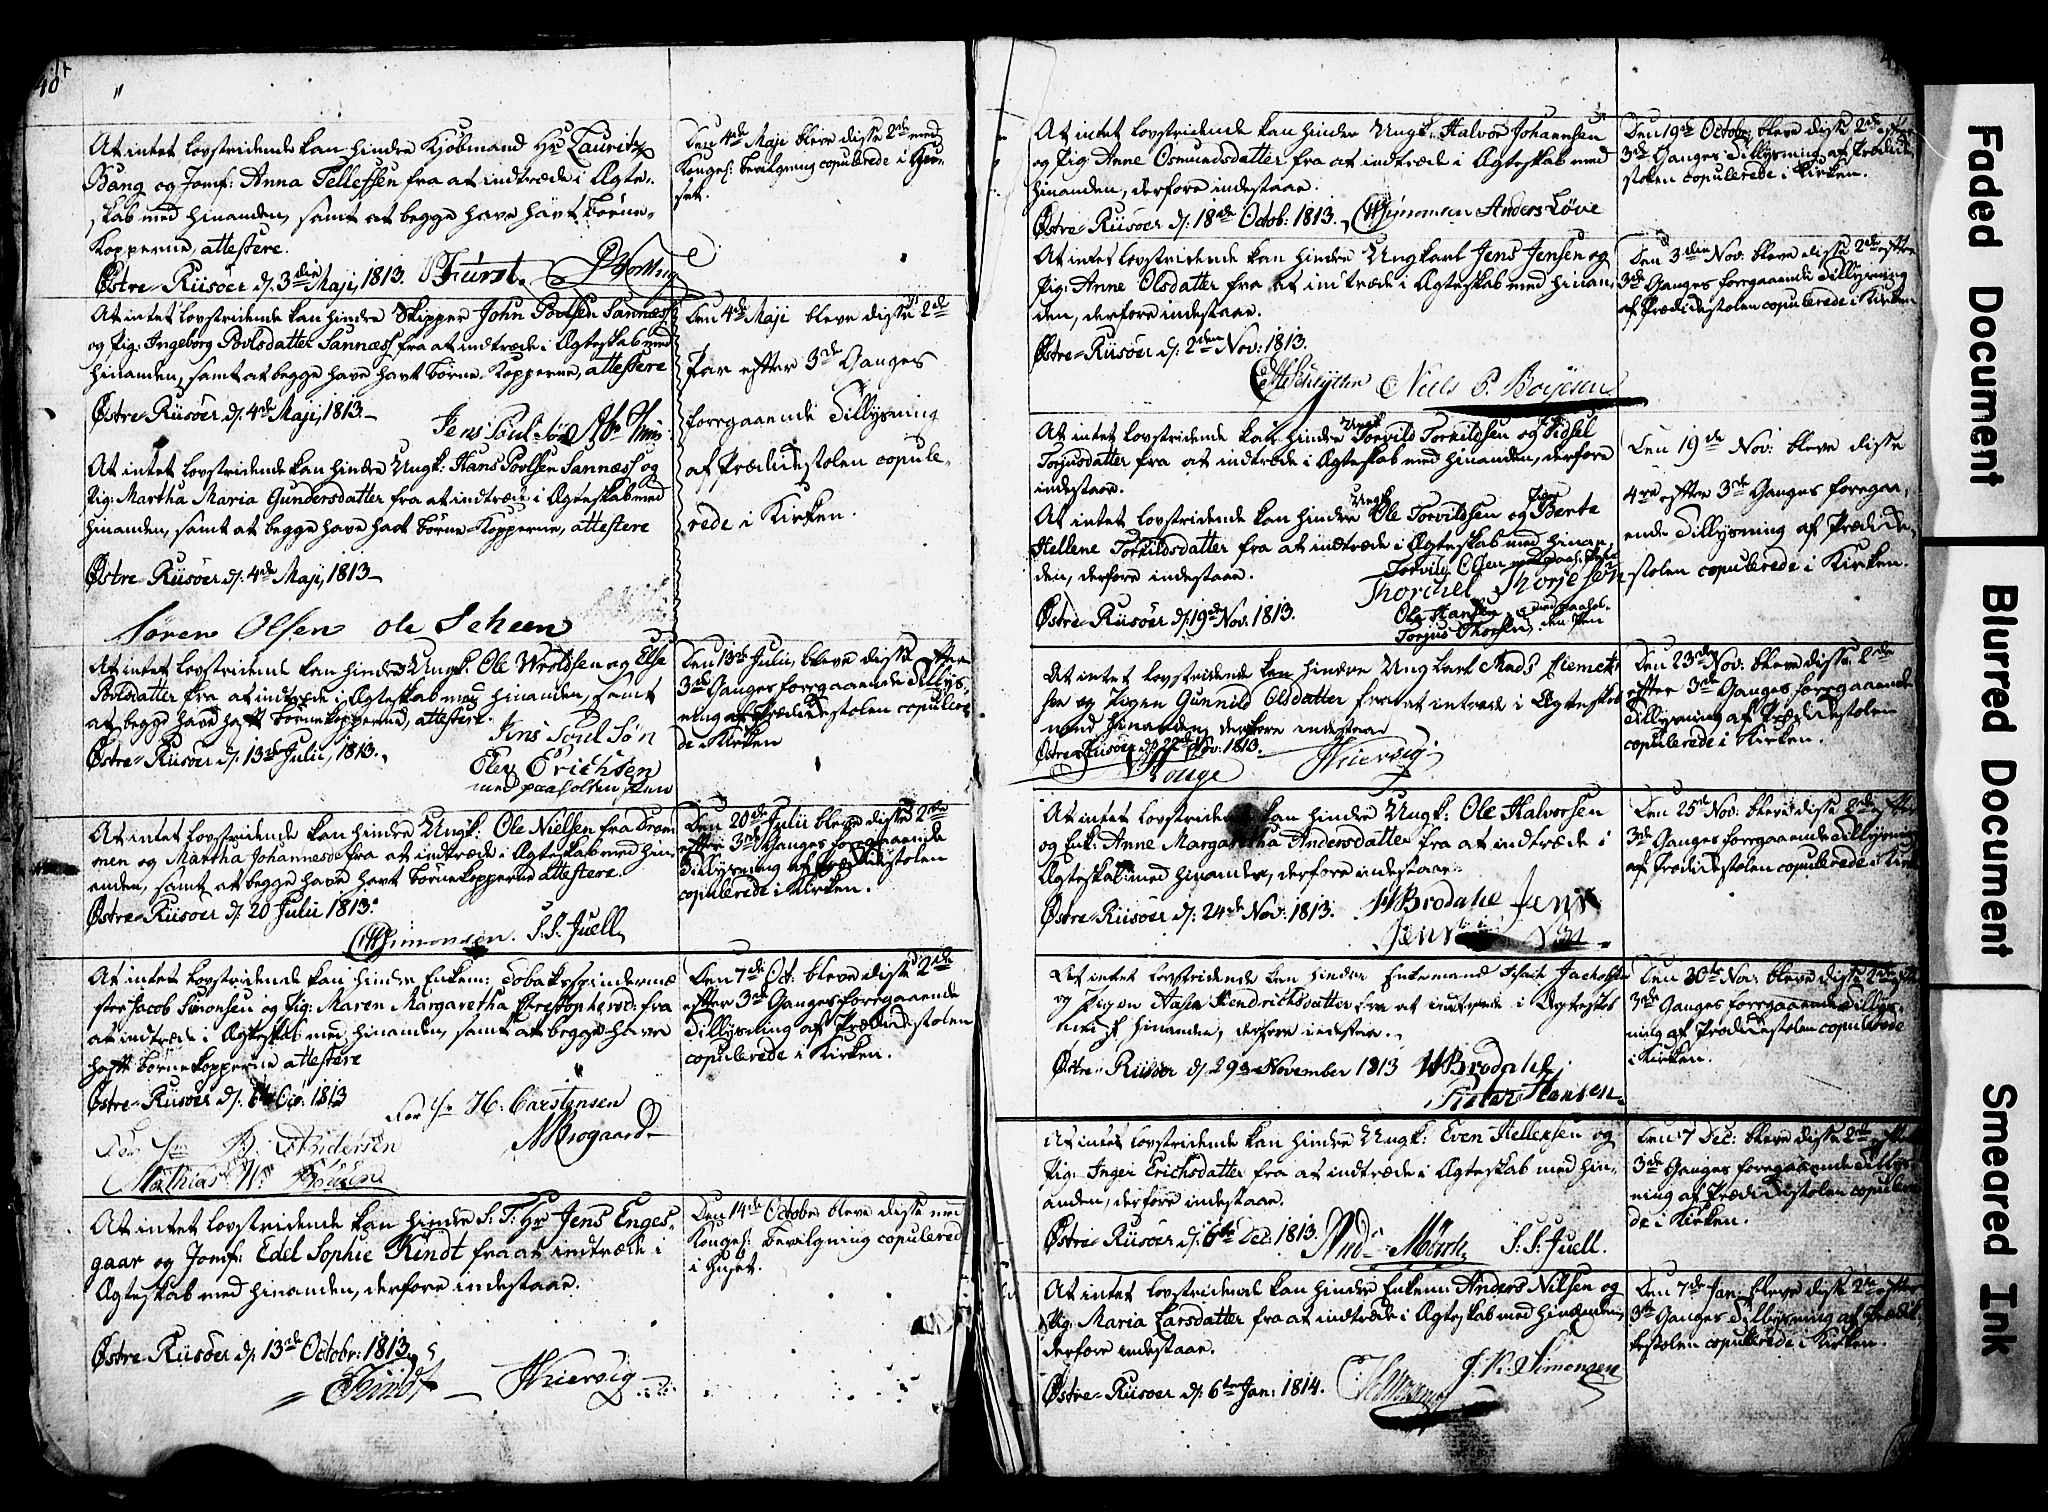 40
At intet lovstridende kan hindre Kjöbmand Hr Lauritz
Bang og Jomf: Anna Tellefsen fra at indtræde i Ægte-
skab med hinanden, samt at begge have havt Börne-
kopperne, attestere.
Østre-Riisöer d. 3die Maji, 1813. Fürst.
Den 4de Maji bleve disse 2de med
Kongel: bevilgning copulerede i Huu-
set.
At intet lovstridende kan hindre Skipper John Povlsen Sannæss
og Pig: Ingeborg Povlsdatter Sannæss fra at indtræde i Ægteskab med
hinanden, samt at begge have havt Börne-Kopperne, attestere
Østre-Riisöer d. 4de Maji, 1813.
Jens Poul Søn
At intet lovstridende kan hindre Ungk: Hans Povlsen Sannæss og
Pig: Martha Maria Gundersdatter fra at indtræde i Ægteskab med
hinanden, samt at begge have havt Börne-Kopperne, attestere
Østre-Riisöer d. 4de Maji, 1813
Søren Olsen ole Scheen
Den 4de Maji bleve disse 2de
Par efter 3de Ganges
forregaaende Tillysning
af Prædikestolen copule-
rede i Kirken.
At intet lovstridende kan hindre Ungk: Ole Wroldsen og Else
Povlsdatter fra at indtræde i Ægteskab med hinanden, samt
at begge have haft Börnekopperne, attestere.
Østre-Riisöer d. 13de Julii, 1813.
Jens Poul Søn
Elev Erichsen
med paaholden Pen
Den 13de Julii, bleve disse efter
3de Ganges forregaaende Tillys-
ning af Prædikestolen copulere
de i Kirken
At intet lovstridende kan hindre Ungk: Ole Nielsen fra Dram
men og Martha Johannesd fra at indtræde i Ægteskab med hin
anden, samt at begge have havt Börnekopperne attestere.
Østre-Riisöer d. 20 Julii 1813.
Simonsen. S. S. Juell
Den 20de Julii bleve disse 2de
efter 3de Ganges forregaaende
Tillysning af Prædikestolen
copulerede i Kirken.
At intet lovstridende kan hindre Enkem: Tobakspindermе
ster Jacob Simonsen og Pig: Maren Margaretha Christophersd: fra
at indtræde i Ægteskab med hinanden, samt at begge have
haft Börnekopperne attestere
Østre-Riisöer d. 6te Oct. 1813
H: Carstensen
Andersen
Mathias
Den 7de Oct: bleve disse 2de
efter 3de Ganges forregaaende
Tillysning af Prædikestolen
copulerede i Kirken.
At intet lovstridende kan hindre S: T: Hr Jens Enges-
gaar og Jomf: Edel Sophie Kindt fra at indtræde i
Ægteskab med hinanden, derfore indestaar.
Østre-Riisöer d. 13de Octobr: 1813.
Kindt Hiervig
Den 14de October bleve disse med
Konges: Bevilgning copulered
i Huset.
At intet lovstridende kan hindre Ungk: Halvor Johannsen
og Pig: Anne Osmundsdatter fra at indtræde i Ægteskab med
hinanden, derfore indestaar.
Østre-Riisöer d. 18de Octob: 1813. Simonsen Anders Löve
Den 19de Octob: bleve disse 2de efter
3de Ganges Tillysning af Prædike
stolen copulerede i Kirken.
At intet lovstridende kan hindre Ungkarl Jens Jensen og
Pig: Anne Olsdatter fra at indtræde i Ægteskab med hinan
den, derfore indestaar.
Østre-Riisöer d: 2den Nov: 1813.
Niels P. Boysen
Den 3die Nov: bleve disse 2de efter
3de Ganges forregaaende Tillysning
af Prædikestolen copulerede i Kirken
At intet lovstridende kan hindre Ungk Torvild Torkildsen og Pig Sidsel
Torjusdatter fra at indtræde i Ægteskab med hinanden, derfore
indestaar.
At intet lovstridende kan hindre Ungk Ole Torvildsen og Pigen Berte
Hellene Torkildsdatter fra at indtræde i Ægteskab med hinan-
den, derfore indestaar.
Østre-Riisöer d. 19de Nov: 1813.
Torvild Olsen
Thorchel Thorjesen
Ole Hansen
Torjus Thorsen
med paahol-
den Pen
Den 19de Nov: bleve disse
4re efter 3de Ganges foregaa-
ende Tillysning af Prædike-
stolen copulerede i Kirken.
At intet lovstridende kan hindre Ungkarl Mads Clemet-
sen og Pigen Gunnild Olsdatter fra at intræde i Ægteskab
med hinanden, derfore indestaar
Østre Riisöer d. 22de Nov: 1813.
Hiervig
Den 23de Nov: bleve disse 2de
efter 3de Ganges forregaaende
Tillysning af Prædikestolen
copulerede i Kirken.
At intet lovstridende kan hindre Ungk: Ole Halvorsen
og Enk: Anne Margaretha Andersdatter fra at indtræde i
Ægteskab med hinanden, derfore indestaar
Østre-Riisöer d: 24de Nov: 1813. Brodahl Jens
Jens
Den 25de Nov: bleve disse 2de efter
3de Ganges forregaaende Tillysning
af Prædikestolen copulerede i Kirk
At intet lovstridende kan hindre Enkemand Isach Jachobsen
og Pigen Aase Hendrichsdatter fra at indtræde i Ægteskab
med hinanden, derfore indestaar.
Østre-Riisöer d. 29de November 1813 Brodahl
Peter Hansen
Den 30te Nov: bleve disse 2de efter
3de Ganges forregaaende Tillys-
ning af Prædikestolen copulerede
i Kirken.
At intet lovstridende kan hindre Ungk: Even Hellersen og
Pig: Inger Erichsdatter fra at indtræde i Ægteskab med hin-
anden, derfore indestaar.
Østre-Riisöer d. 6te Dec: 1813. And: Mörch S. S. Juell.
Den 7 Dec: bleve disse 2de efter
3de Ganges forregaaende Tillys
ning af Prædikestolen copulere
de i Kirken.
At intet lovstridende kan hindre Enkem: Anders Nilsen og
Pig: Maria Larsdatter fra at indtræde i Ægteskab med hinanden,
derfore indestaar.
Østre-Riisöer d: 6te Jan: 1814. J. K. Simonsen
Den 7de Jan: bleve disse 2de efter
3de Ganges Tillysning af Prædi-
kestolen copulerede i Kirken.
Faded Document
Blurred Document
Smeared Ink